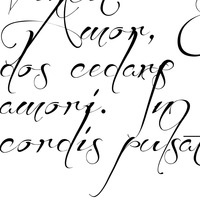 Amor,
dos cedars
amori. In
cordis pulsā